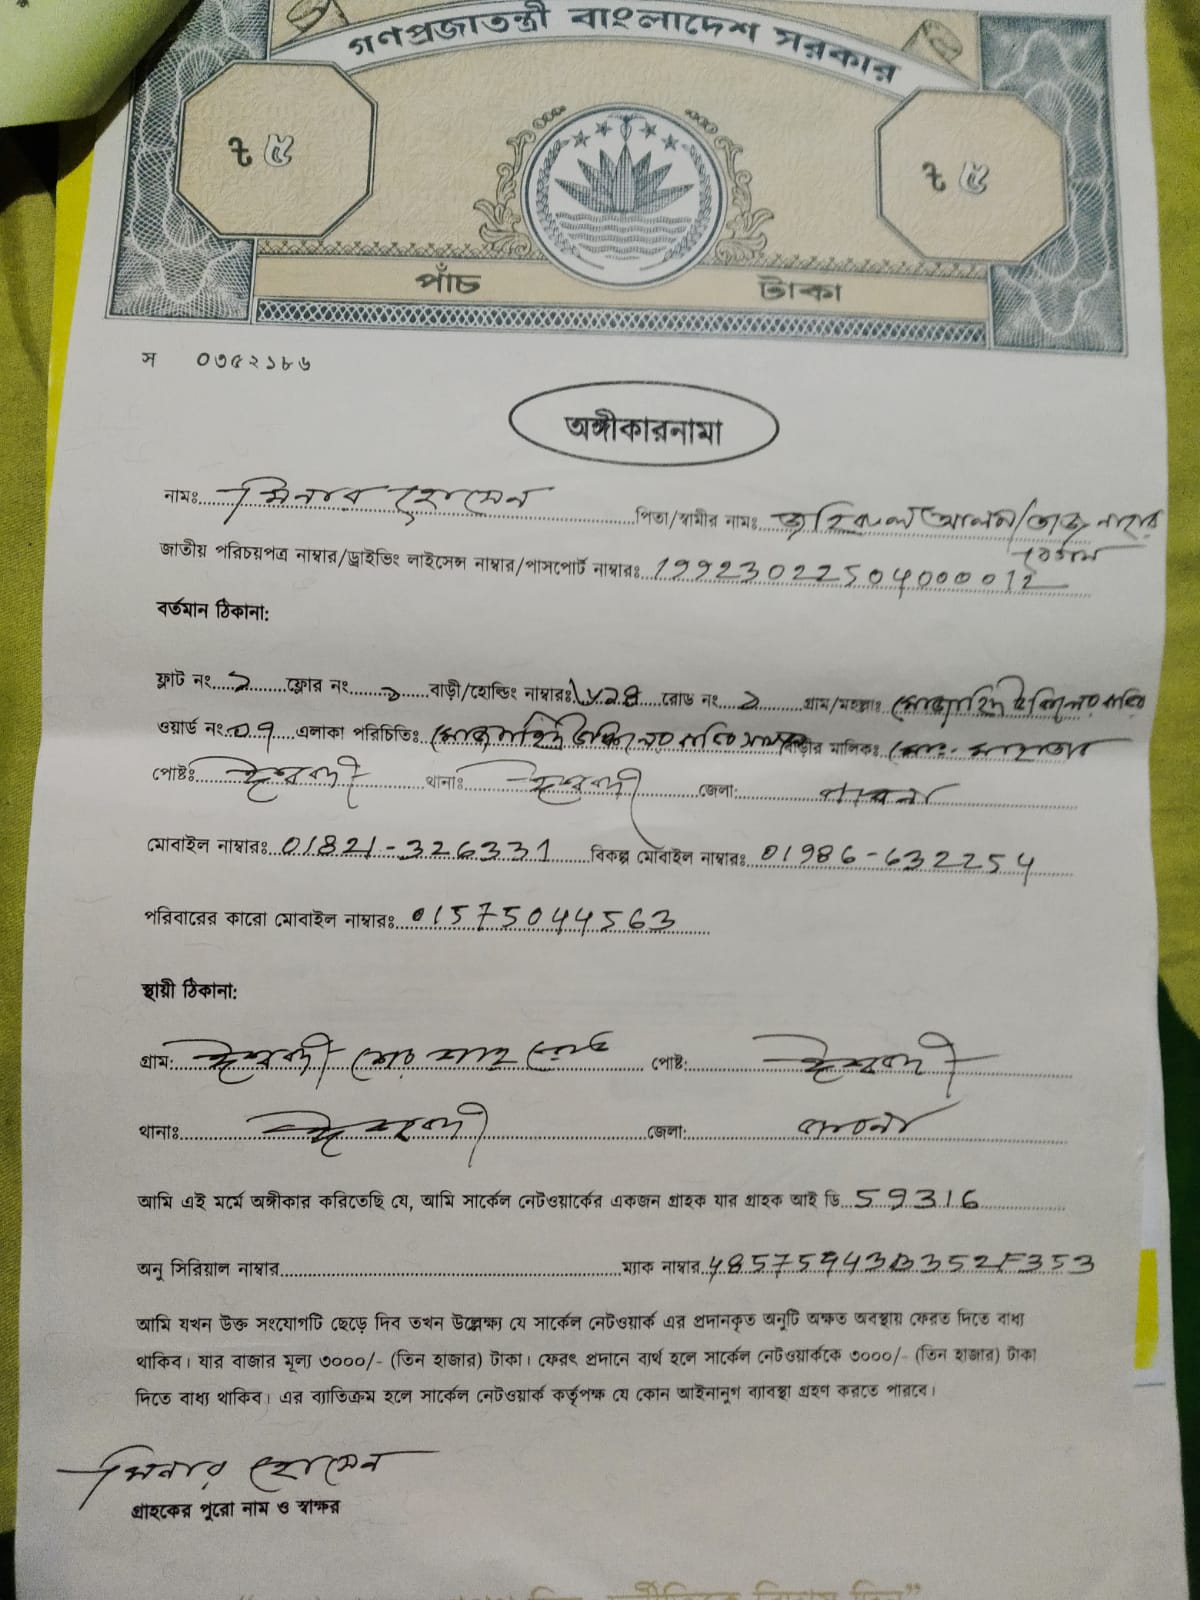 গণপ্রজাতন্ত্রী বাংলাদেশ সরকার
৳ ৫ ৳ ৫
পাঁচ টাকা
স ০৩৫২১৮৬
অঙ্গীকারনামা
নামঃ মিনার হোসেন পিতা/স্বামীর নামঃ জহিরুল আলম/তাজ নাহার বেগম
জাতীয় পরিচয়পত্র নাম্বার/ড্রাইভিং লাইসেন্স নাম্বার/পাসপোর্ট নাম্বারঃ 19923022504000012
বর্তমান ঠিকানা:
ফ্লাট নং ২ ফ্লোর নং বাড়ী/হোল্ডিং নাম্বারঃ রোড নং ২ গ্রাম/মহল্লাঃ
ওয়ার্ড নং ০৭ এলাকা পরিচিতিঃ বাড়ীর মালিকঃ
পোষ্টঃ ঈশ্বরদী থানাঃ ঈশ্বরদী জেলা: পাবনা
মোবাইল নাম্বারঃ 01821-326331 বিকল্প মোবাইল নাম্বারঃ 01986-632254
পরিবারের কারো মোবাইল নাম্বারঃ 01575044563
স্থায়ী ঠিকানা:
গ্রাম: ঈশ্বরদী শের শাহ রোড পোষ্ট: ঈশ্বরদী
থানাঃ ঈশ্বরদী জেলা: পাবনা
আমি এই মর্মে অঙ্গীকার করিতেছি যে, আমি সার্কেল নেটওয়ার্কের একজন গ্রাহক যার গ্রাহক আই ডি 59316
অনু সিরিয়াল নাম্বার ম্যাক নাম্বার 485759443B352F353
আমি যখন উক্ত সংযোগটি ছেড়ে দিব তখন উল্লেক্ষ্য যে সার্কেল নেটওয়ার্ক এর প্রদানকৃত অনুটি অক্ষত অবস্থায় ফেরত দিতে বাধ্য
থাকিব। যার বাজার মূল্য ৩০০০/- (তিন হাজার) টাকা। ফেরৎ প্রদানে ব্যর্থ হলে সার্কেল নেটওয়ার্ককে ৩০০০/- (তিন হাজার) টাকা
দিতে বাধ্য থাকিব। এর ব্যাতিক্রম হলে সার্কেল নেটওয়ার্ক কর্তৃপক্ষ যে কোন আইনানুগ ব্যাবস্থা গ্রহণ করতে পারবে।
মিনার হোসেন
গ্রাহকের পুরো নাম ও স্বাক্ষর